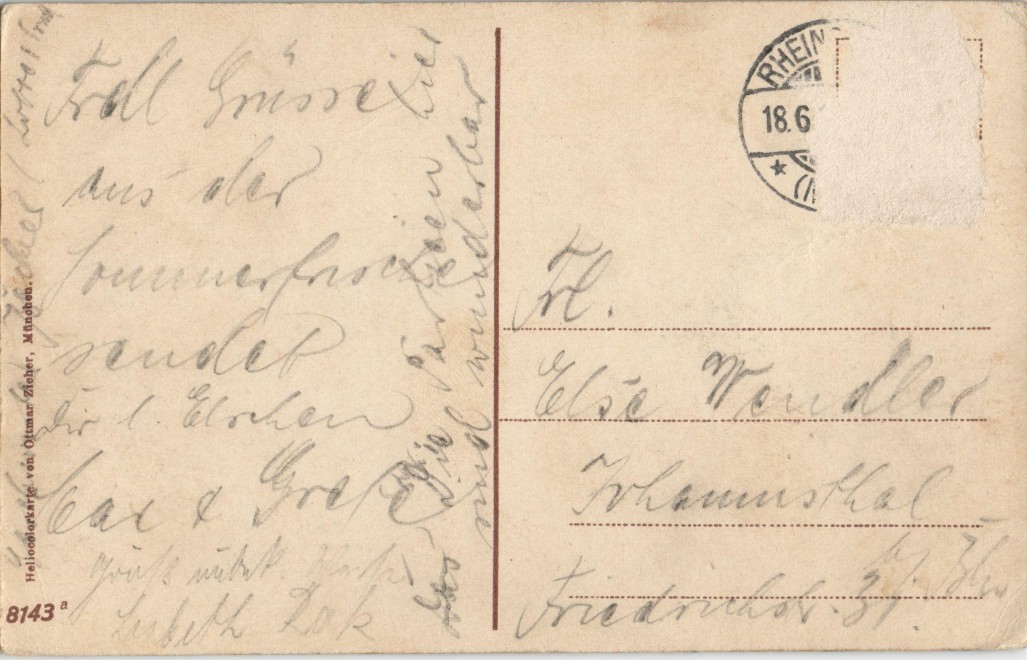 Frdl Grüsse
aus der
Sommerfrische
sendet
Dir l. Elschen
Max & Grete
Gruß unbek.
Lisbeth
Die Partien hier
sind wunderbar
Heliocolorkarte von Ottmar Zieher, München.
8143 a
RHEIN
18.6
Frl.
Else Wendler
Johannisthal
b/
Friedrichstr. 31.